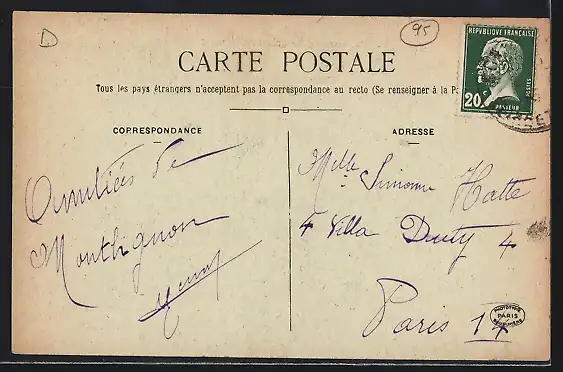 D
95
CARTE POSTALE
Tous les pays étrangers n'acceptent pas la correspondance au recto (Se renseigner à la Po
REPUBLIQUE FRANÇAISE
20 c
POSTES
PASTEUR
CORRESPONDANCE
ADRESSE
Amitiés de
Montlignon
Melle Simone Hatte
4 Villa Duty 4
Paris 17
PARIS